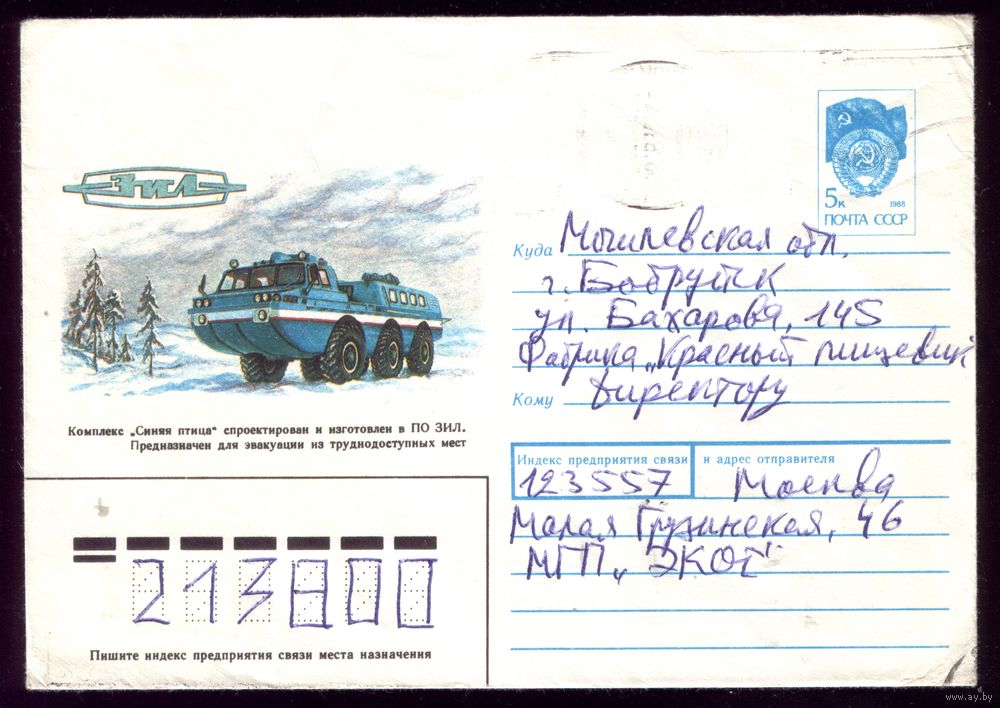 ЗИЛ
Комплекс „Синяя птица“ спроектирован и изготовлен в ПО ЗИЛ.
Предназначен для эвакуации из труднодоступных мест
5к
1988
ПОЧТА СССР
Куда Могилевская обл.
г. Бобруйск
ул. Бахарова, 145
Фабрика „Красный пищевик
Кому Директору
Индекс предприятия связи и адрес отправителя
123557 Москва
Малая Грузинская, 46
МГП „ЭКОТ"
213800
Пишите индекс предприятия связи места назначения
www.ay.by